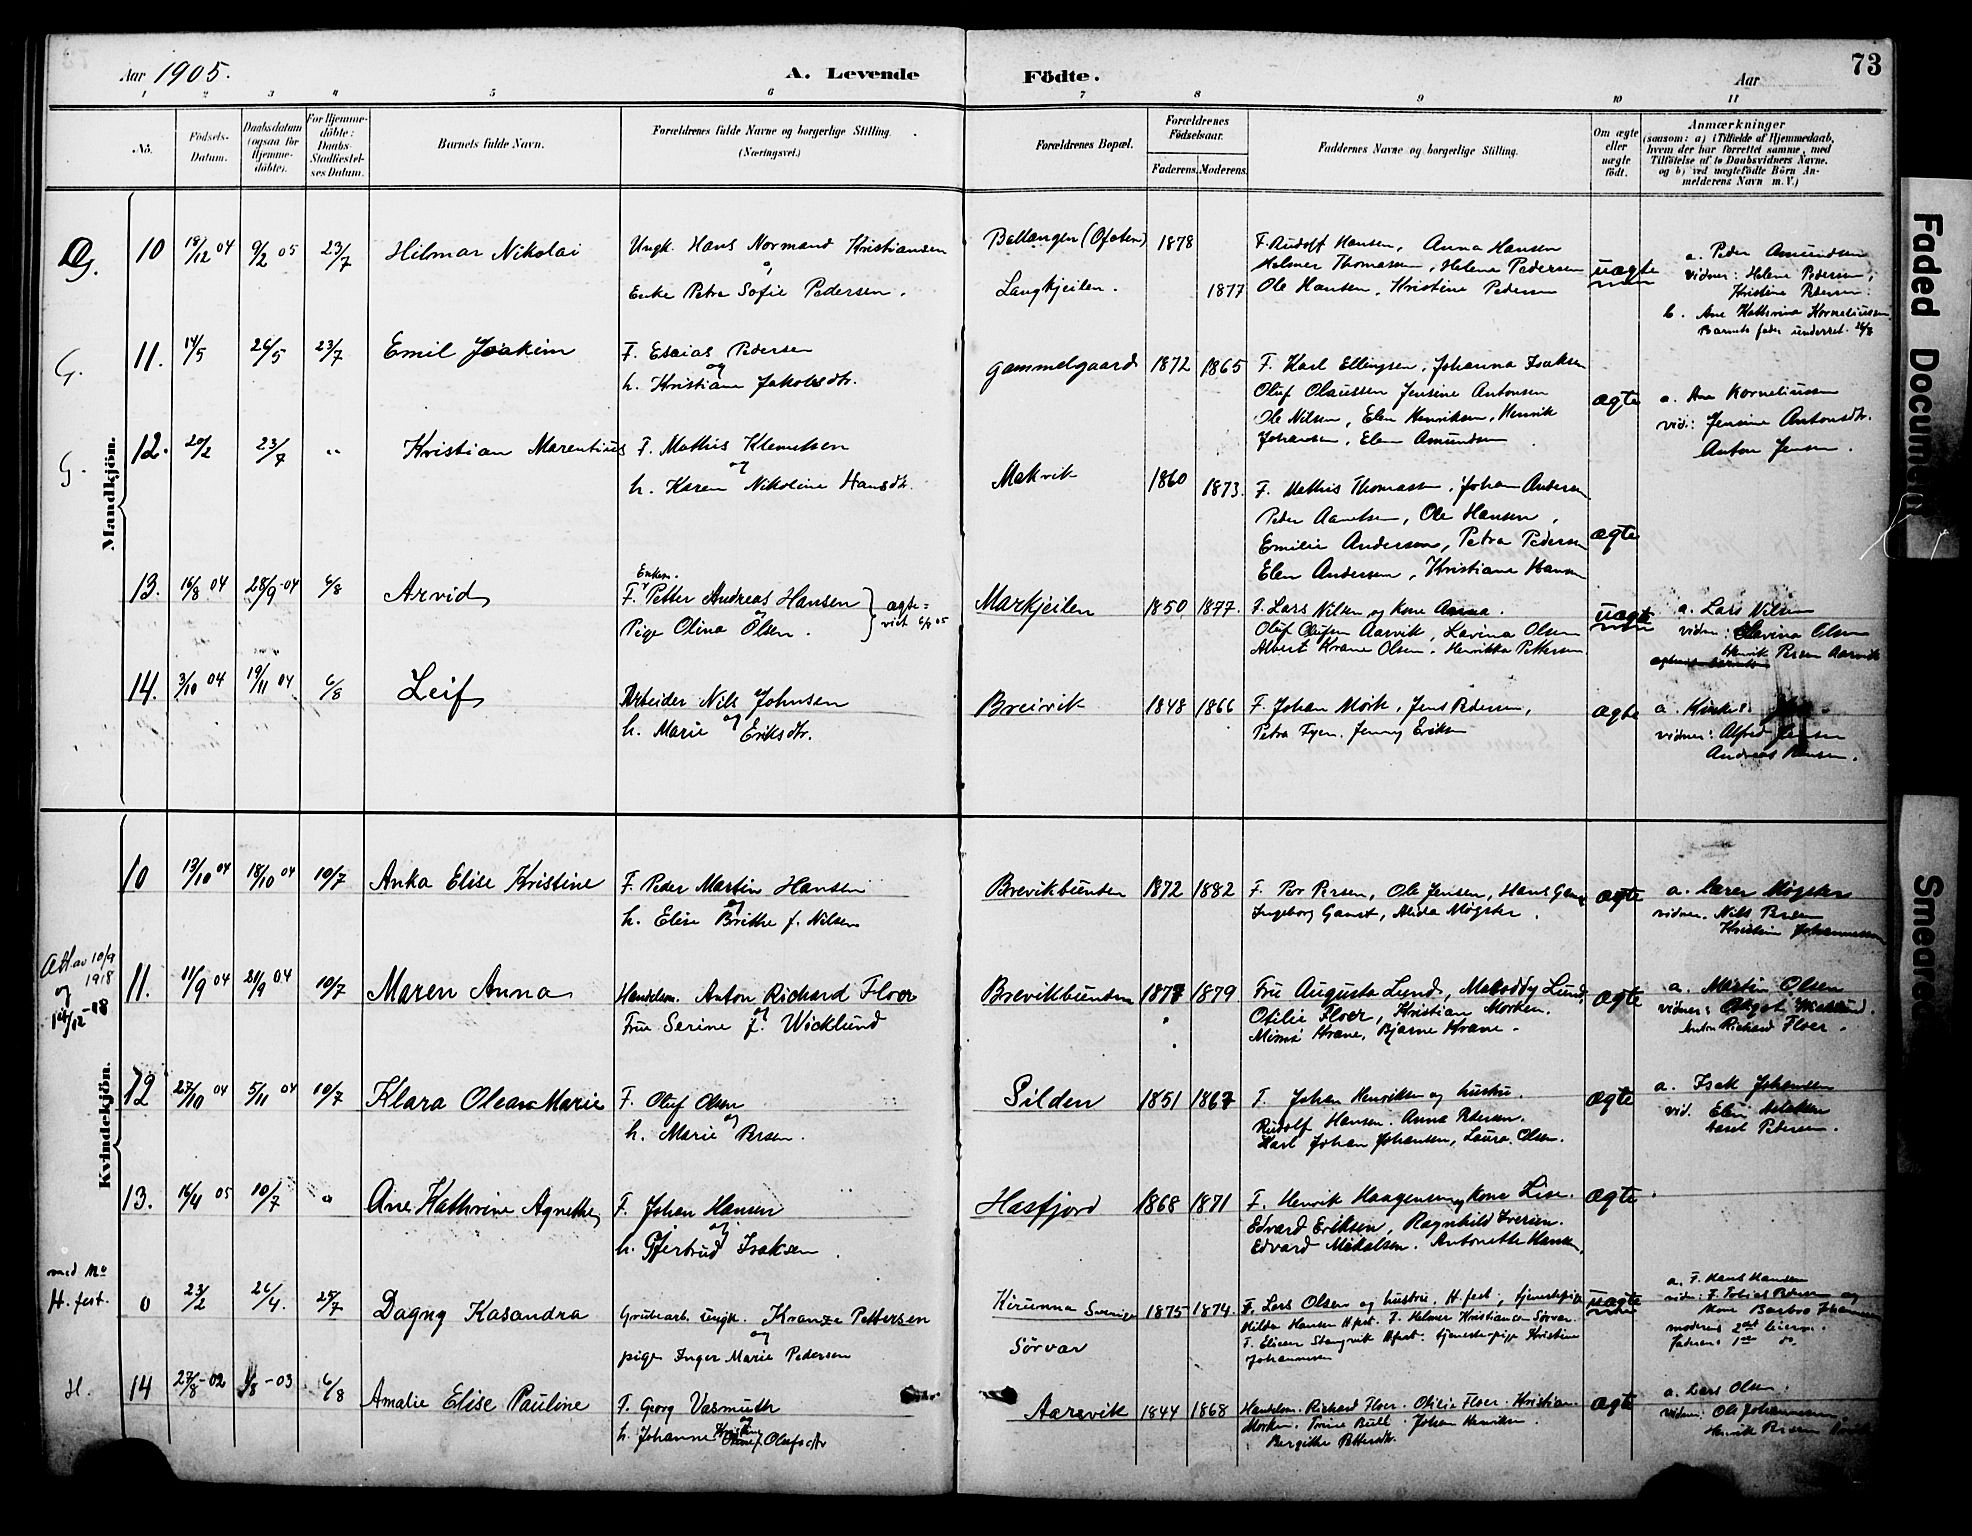 Aar 1905.
A. Levende
Födte.
Aar
73
1 2 3 4 5 6 7 8 9 10 11
No.
Födsels-
Datum.
Daabsdatum
(ogsaa for
Hjemme-
döbte).
For Hjemme-
döbte:
Daabs-
Stadfæstel-
ses Datum.
Barnets fulde Navn.
Forældrenes fulde Navne og borgerlige Stilling.
(Næringsvei.)
Forældrenes Bopæl.
Forældrenes
Födselsaar.
Faderens. Moderens.
Faddernes Navne og borgerlige Stilling.
Om ægte
eller
uægte
födt.
Anmærkninger
(saasom: a) i Tilfælde af Hjemmedaab,
hvem der har forrettet samme, med
Tilföielse af to Daabsvidners Navne.
og b) ved uægtefödte Börn An-
melderens Navn m. V.)
Mandkjön.
G. 10 18/12 04 9/2 05 23/7 Hilmar Nikolai
Ungk. Hans Normand Kristiansen
og
Enke Petra Sofie Pedersen.
Ballangen (Ofoten)
Langkjeilen.
1878
1877
F. Rudolf Hansen, Anna Hansen
Helmer Thomassen, Helene Pedersen
Ole Hansen, Kristine Pedersen
uægte
a. Peder Amundsen
vidner: Helene Pedersen,
Kristine Pedersen.
b. Ane Kathrina Korneliussen
Barnets fader underret. 26/8
G. 11. 14/5 26/5 23/7 Emil Joakim
F. Esaias Pedersen
og
h. Kristiane Jakobsdtr.
Gammelgaard 1872 1865
F. Karl Ellingsen, Johanna Isaksen
Oluf Olaussen Jensine Antonsen
Ole Nilsen, Elen Henriksen, Henrik
Johansen, Elen Amundsen
ægte
a. Ane Korneliussen
vid.: Jensine Antonsdtr.
Anton Jensen.
G. 12. 20/2 23/7 " Kristian Marentius
F. Mathis Klemetsen
og
h. Karen Nikoline Hansdtr.
Makvik 1860 1873.
F. Mathis Thomassen, Johan Andersen
Peder Aanetsen, Ole Hansen,
Emilie Andersen, Petra Pedersen
Elen Andersen, Kristiane Hansen
ægte
13. 16/8 04 28/9 -04 6/8 Arvid
Enkem.
F. Petter Andreas Hansen
og
Pige Olina Olsen.
ægte=
viet 6/8 05
Markjeilen 1850 1877.
F. Lars Nilsen og Kone Anna.
Oluf Olufsen Aarvik, Lavina Olsen
Albert Krane Olsen, Henrikka Pettersen
uægte
a. Lars Nilsen
vidner: Lavina Olsen
Henrik Persen Aarvik
14. 3/10 04 19/11 04 6/8 Leif
Arbeider Nils Johnsen
og
h. Marie Eriksdtr.
Breivik 1848 1866
F. Johan Mörk, Jens Pedersen,
Petra Fyen, Jenny Eriksen
ægte
a.
vidner: Alfred Jensen
Andreas Hansen.
Kvindekjön.
10 13/10 04 18/10 04 10/7 Anka Elise Kristine
F. Peder Martin Hansen
og
h. Elise Birthe f. Nilsen
Brevikbunden 1872 1882
F. Per Persen, Ole Jensen, Hans Ganst
Ingeborg Ganst, Alida Møgster.
ægte
a. Lærer Møgster
vidner. Nils Persen
Kristine Johannessen
Att. av 10/9
1918
og
12/12 -18
11. 11/9 04 21/9 04 10/7 Maren Anna
Handelsm. Anton Richard Floer
og
Frue Serine f. Wicklund
Brevikbunden 1877 1879
Fru Augusta Lund, Meloddy Lund,
Otilie Floer, Kristian Morken.
Mimi Krane, Bjarne Krane.
ægte
a. Martin Olsen
vidner:
Anton Richard Floer.
12 27/10 04 5/11 04 10/7 Klara Oleana Marie
F. Oluf Olsen
og
h. Marie Persen.
Silden 1851 1867
F. Johan Henriksen og hustru.
Rudolf Hansen. Anna Pedersen.
Karl Johan Johansen, Laura Olsen.
ægte
a. Isak Johansen
vid. Elen
Aaret Pedersen.
13. 16/4 05 10/7 " Ane Kathrine Agnethe
F. Johan Hansen
og
h. Gjertrud Isaksen.
Hasfjord 1868 1871
F. Henrik Haagensen og Kone Lise.
Edvard Eriksen, Ragnhild Iversen.
Edvard Mikalsen. Antonette Hansen,
ægte
med No
H. fest.
0 23/2 26/4. 25/7 Dagny Kasandra
Grubearb. ungk. Kranze Pettersen
og
pige Inger Marie Pedersen
Kirunna Sverige
Sørvær
1875 1874.
F. Lars Olsen og hustru, H.fest, tjenestepige
Hilda Hansen Hfest. F. Helmer Kristiansen Sørvær
F. Elisen Stangvik Hfest. tjenestepige Kristine
Johannessen
uægte
a. F. Hans Hansen
vidn: F. Tobias Pedersen og
Kone Barbro Johannessen
moderens 2det leierm.
Faderens 1ste do.
H. 14 27/8 -02 /8 -03 6/8 Amalie Elise Pauline
F. Georg Vasmuth
og
h. Johanne Kristine f. Olufsdtr
Aarsvik 1844 1868
Handelsm. Richard Floer. Otilie Floer. Kristian
Morken. Trine Bull. Johan Henriksen.
Bergitte Pettersdtr.
ægte
a. Lars Olsen.
vidner: Ole Johannessen
Henrik Persen
Faded Document
Smeared